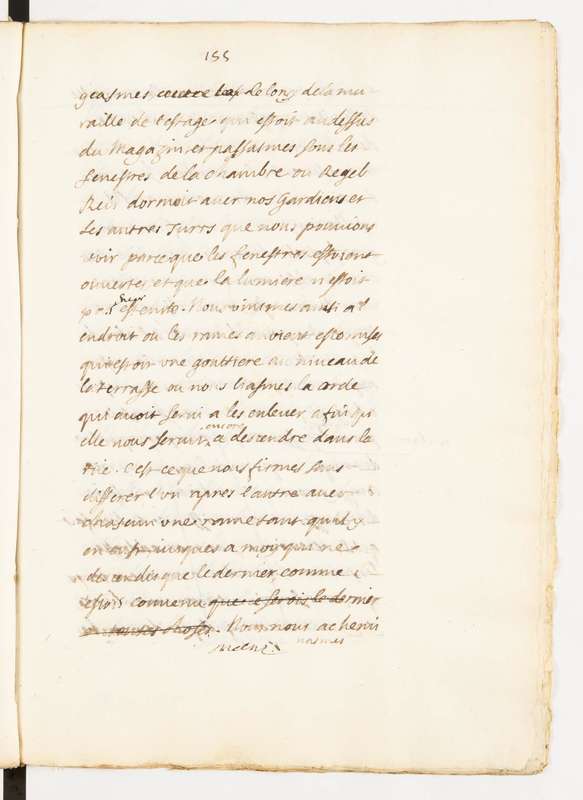 155
geasmes le long de la mu
raille de l'estage qui estoit au dessus
du Magazin et passasmes sous les
fenestres de la chambre ou Regeb
Reis dormoit avec nos Gardiens et
les autres Turcs que nous pouvions
voir parce que les fenestres estoient
ouvertes et que la lumiere n'estoit
pas esteinte. Nous vinsmes ainsi a l
endroit ou les rames avoient esté mises
qui estoit une gouttiere au niveau de
la terrasse ou nous liasmes la corde
qui avoit servi a les enlever afin qu
elle nous servit encore a descendre dans la
rüe. C'est ce que nous fismes sans
differer l'un apres l'autre avec
chascun une rame tant qu'il y
en eut jusques a moy qui ne
descendis que le dernier, comme i
estois convenu que ie serois le dernier
en toutes choses. Nous nous achemi
nasmes